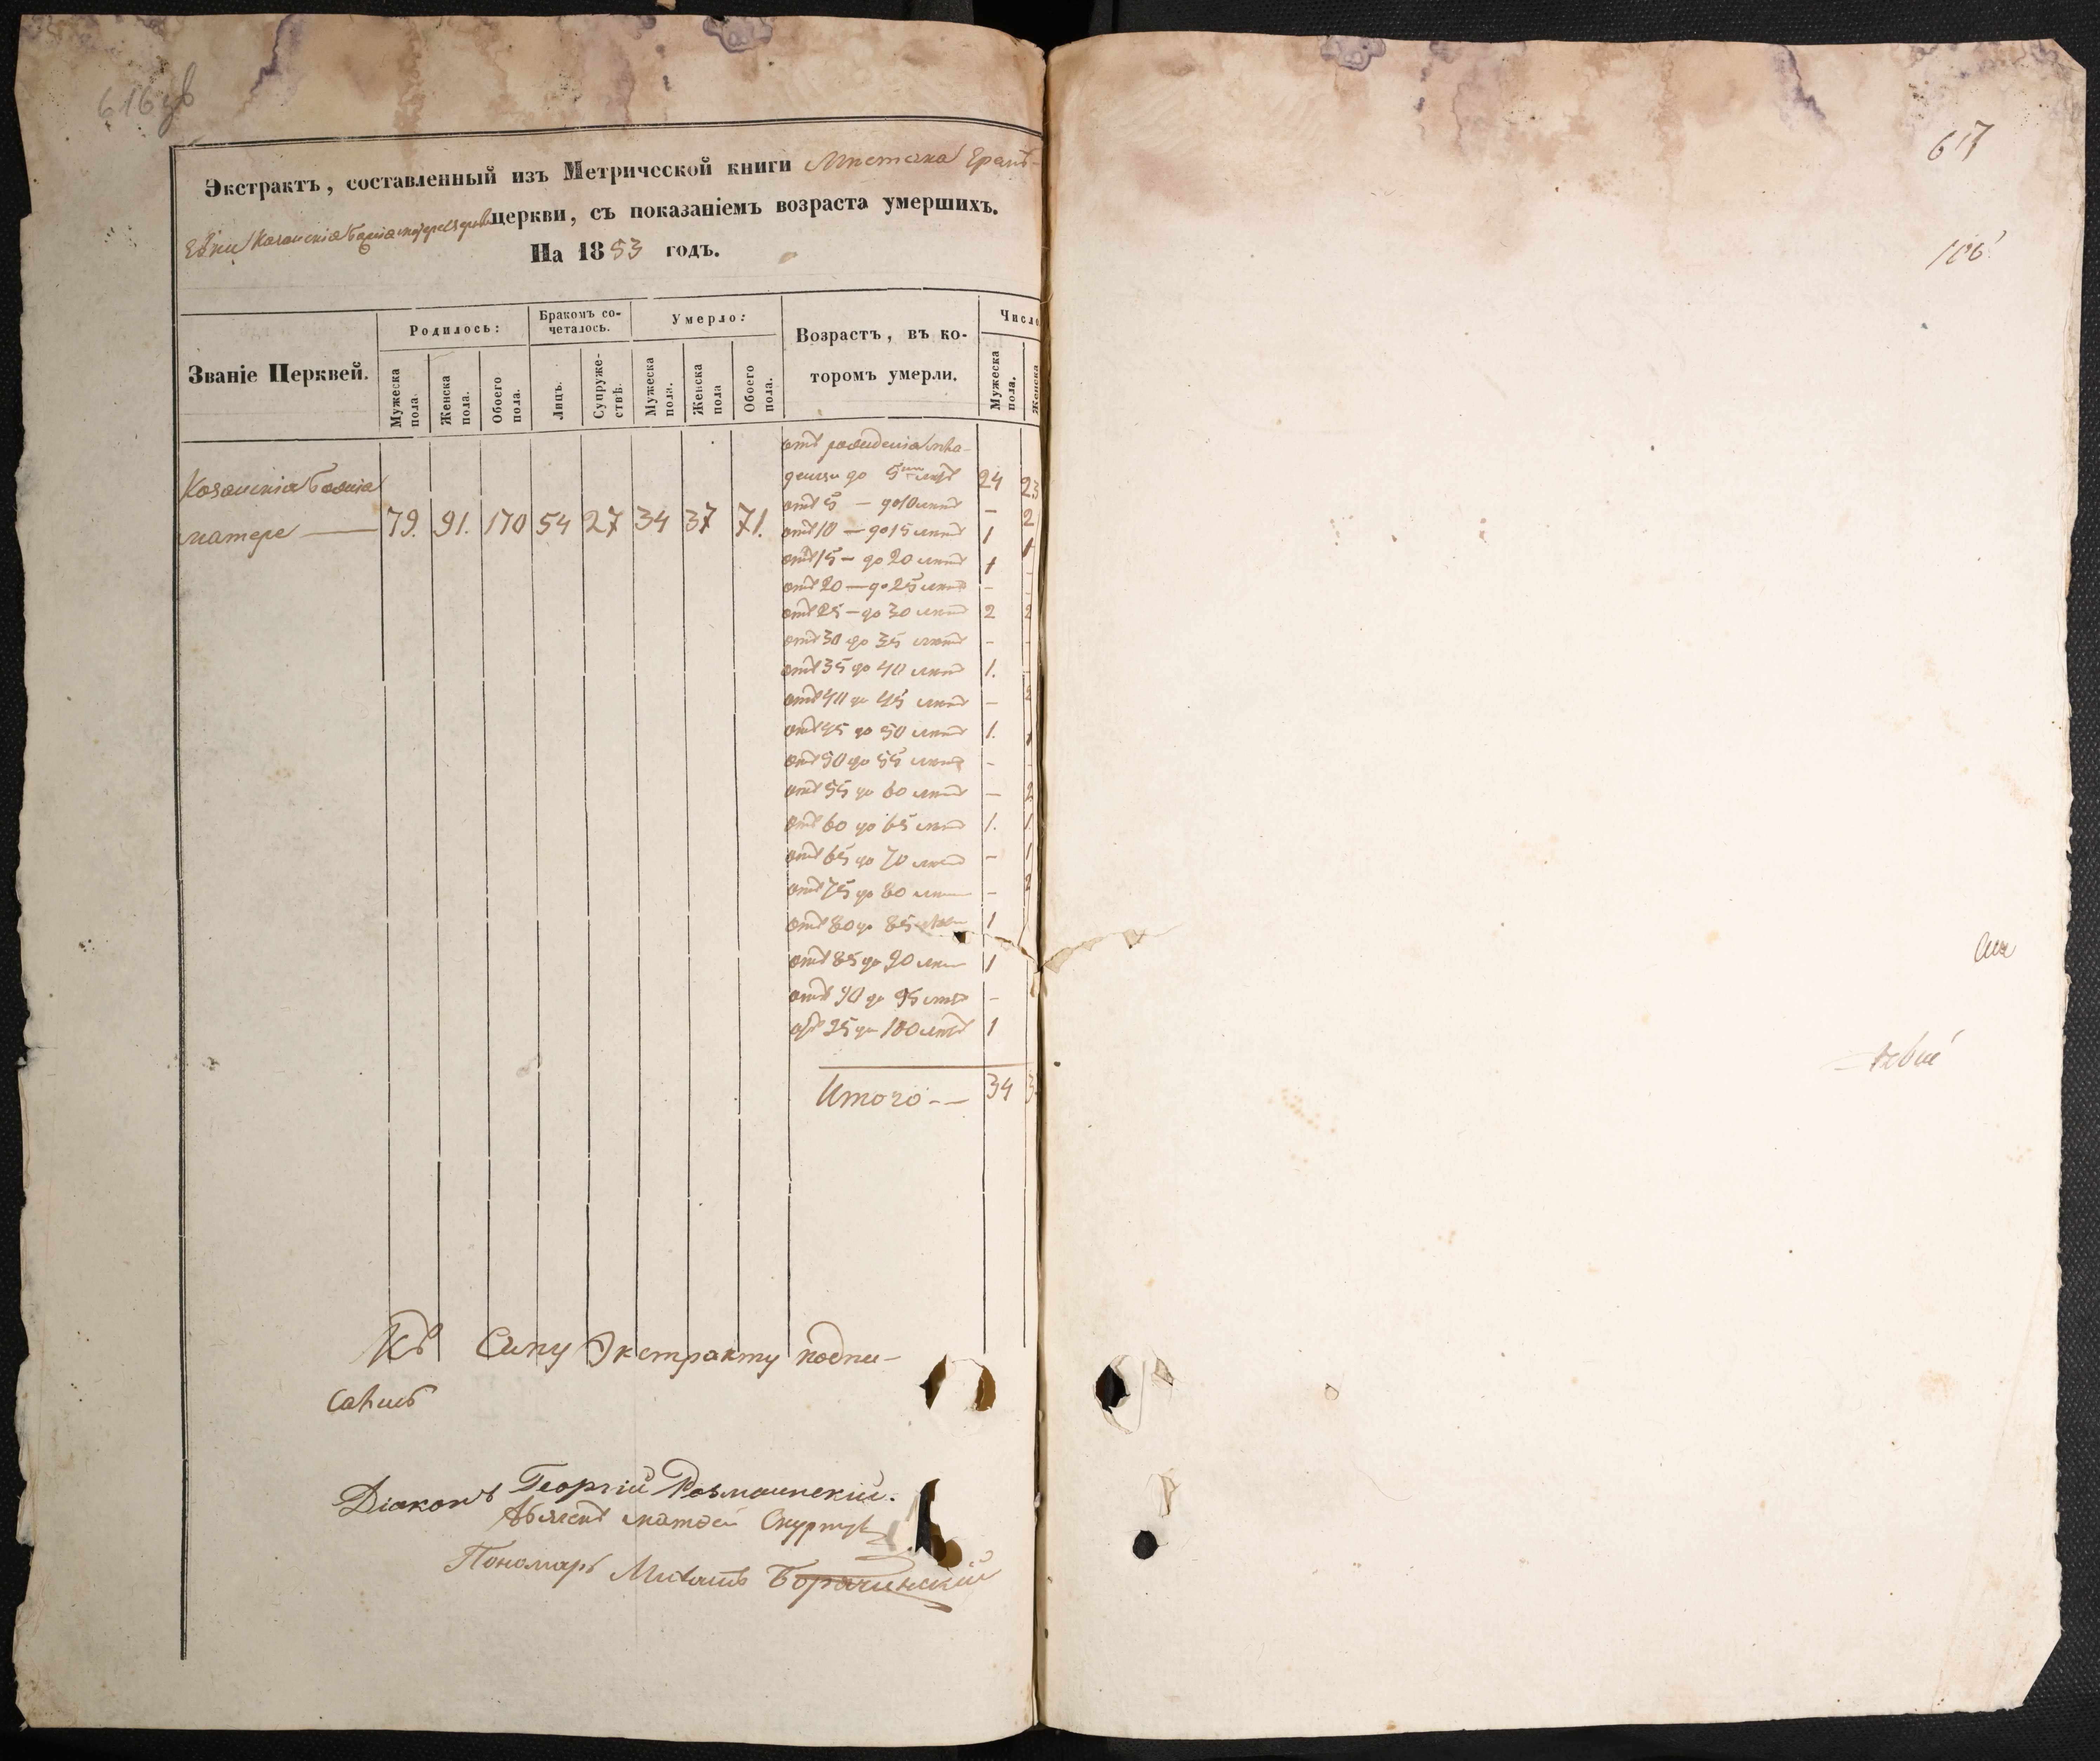 616 об
Экстрактъ, составленный изъ Метрической книги Мистечка
Казанскія Божія матере церкви, съ показаніемъ возраста умершихъ.
На 1853 годъ.
Званіе Церквей.
Родилось:
Мужеска пола.
Женска пола.
Обоего пола.
Бракомъ со-
четалось.
Лицъ.
Супруже-
ствъ.
Умерло:
Мужеска пола.
Женска пола
Обоего пола.
Возрастъ, въ ко-
торомъ умерли.
Число
Мужеска пола.
Женска
Казанскія Божія
матере — 79. 91. 170 54 27 34 37 71.
отъ рожденія мла-
денцы до 5ти лѣтъ 24 23
отъ 5 — до 10 лѣтъ — 2
отъ 10 — до 15 лѣтъ 1 1
отъ 15 — до 20 лѣтъ 1 -
отъ 20 — до 25 лѣтъ - -
отъ 25 — до 30 лѣтъ 2 2
отъ 30 до 35 лѣтъ - -
отъ 35 до 40 лѣтъ 1. -
отъ 40 до 45 лѣтъ — 2
отъ 45 до 50 лѣтъ 1. 1
отъ 50 до 55 лѣтъ - -
отъ 55 до 60 лѣтъ — 2
отъ 60 до 65 лѣтъ 1. 1
отъ 65 до 70 лѣтъ - 1
отъ 75 до 80 лѣтъ - 2
отъ 80 до 85 лѣтъ 1
отъ 85 до 90 лѣтъ 1
отъ 90 до 95 лѣтъ -
отъ 95 до 100 лѣтъ 1
Итого -- 34 3
Къ Сему Экстракту подпи-
сались
Діаконъ Георгій
Дьячекъ Матѳей
Пономарь Михаилъ
617
106